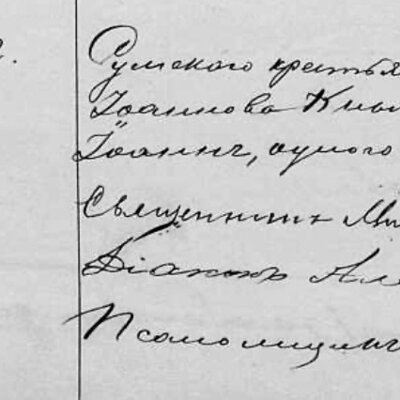 Сумского крестья
Іоаннова Кно
Іоаннъ, одного
Священникъ Ми
Діаконъ Але
Псаломщикъ